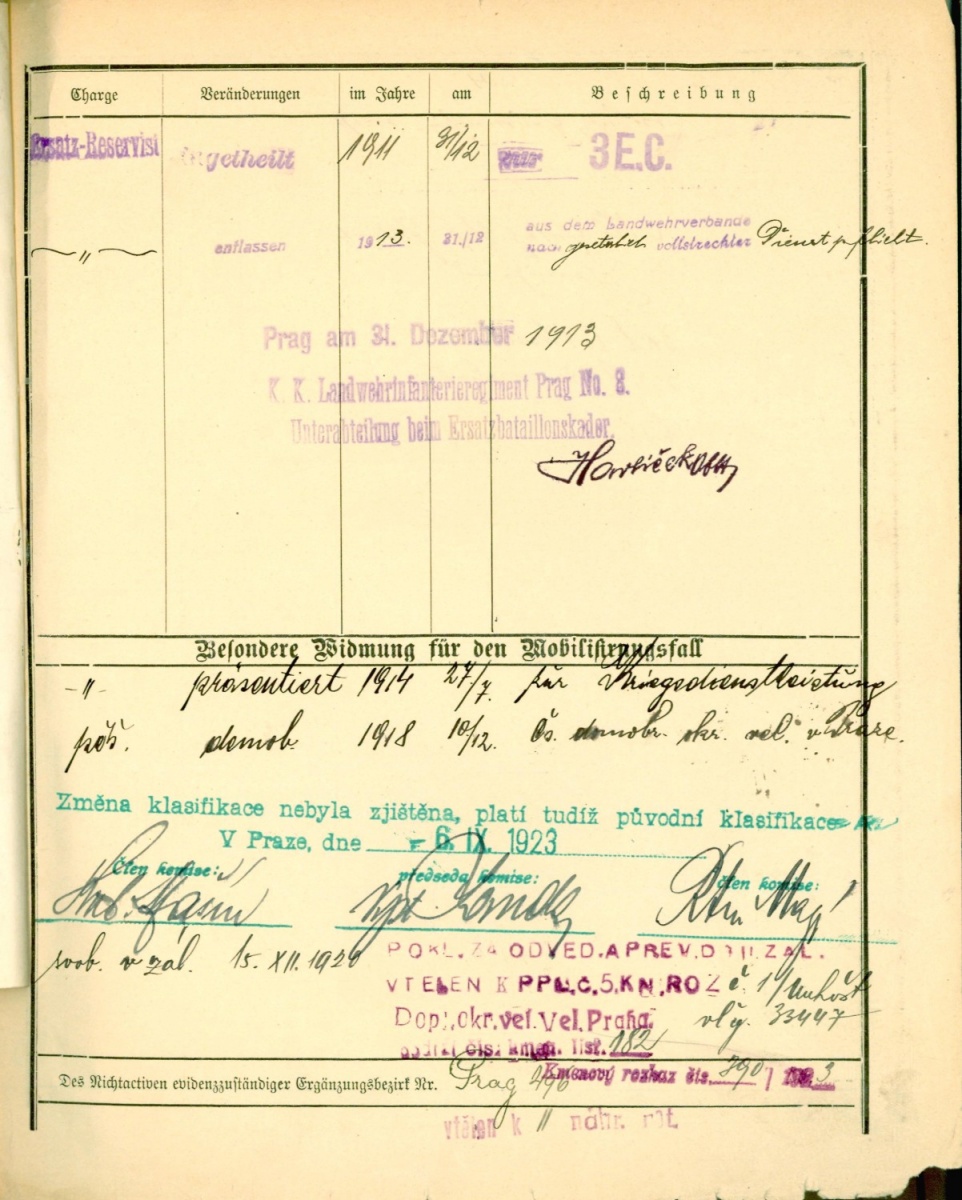 Charge Veränderungen im Jahre am Beschreibung
Ersatz-Reservist eingetheilt 1911 31/12 3 E.C.
〃 entlassen 1913. 31./12 aus dem Landwehrverbande
nach vollstreckter Dienstpflicht.
Prag am 31. Dezember 1913
K. K. Landwehrinfanterieregiment Prag No. 8.
Unterabteilung beim Ersatzbataillonskader.
Besondere Widmung für den Mobilisirungsfall
-〃- präsentiert 1914 27/7. für Kriegsdienstleistung
pěš. demob. 1918 10/12. čs. demobr. okr. vel. v Praze.
Změna klasifikace nebyla zjištěna, platí tudíž původní klasifikace
V Praze, dne - 6. IX. 1923
člen komise: předseda komise: člen komise:
svob. v zál. 15. XII. 1920
POKL. ZA ODVED. A PREV. DO II. ZÁL.
VTĚLEN K PPL. Č. 5, KN. ROZ č. 1/Unhošť
Dopl. okr. vel. Vel. Praha. 33447
čís. kmen. list. 182
Kmenový rozkaz čís. 390 / 1923
Des Nichtactiven evidenzzuständiger Ergänzungsbezirk Nr. Prag
vtělen k 11 náhr. rot.